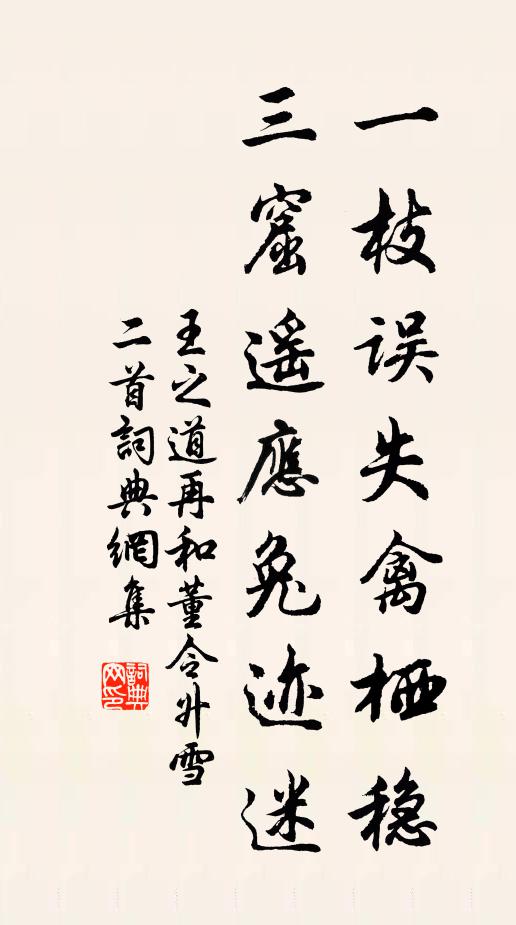 一枝误失禽栖稳
三窟遥應兔迹迷
王之道再和董令升雪
二首詞典網集
詞典網印